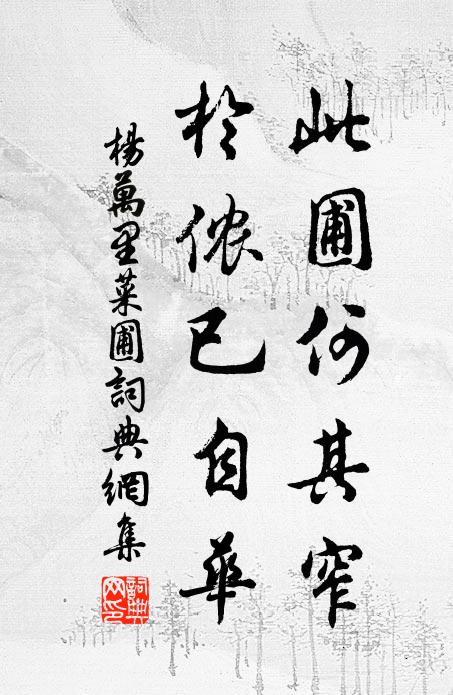 此圃何其窄
於侬已自華
楊萬里菜圃詞典網集
詞典網印